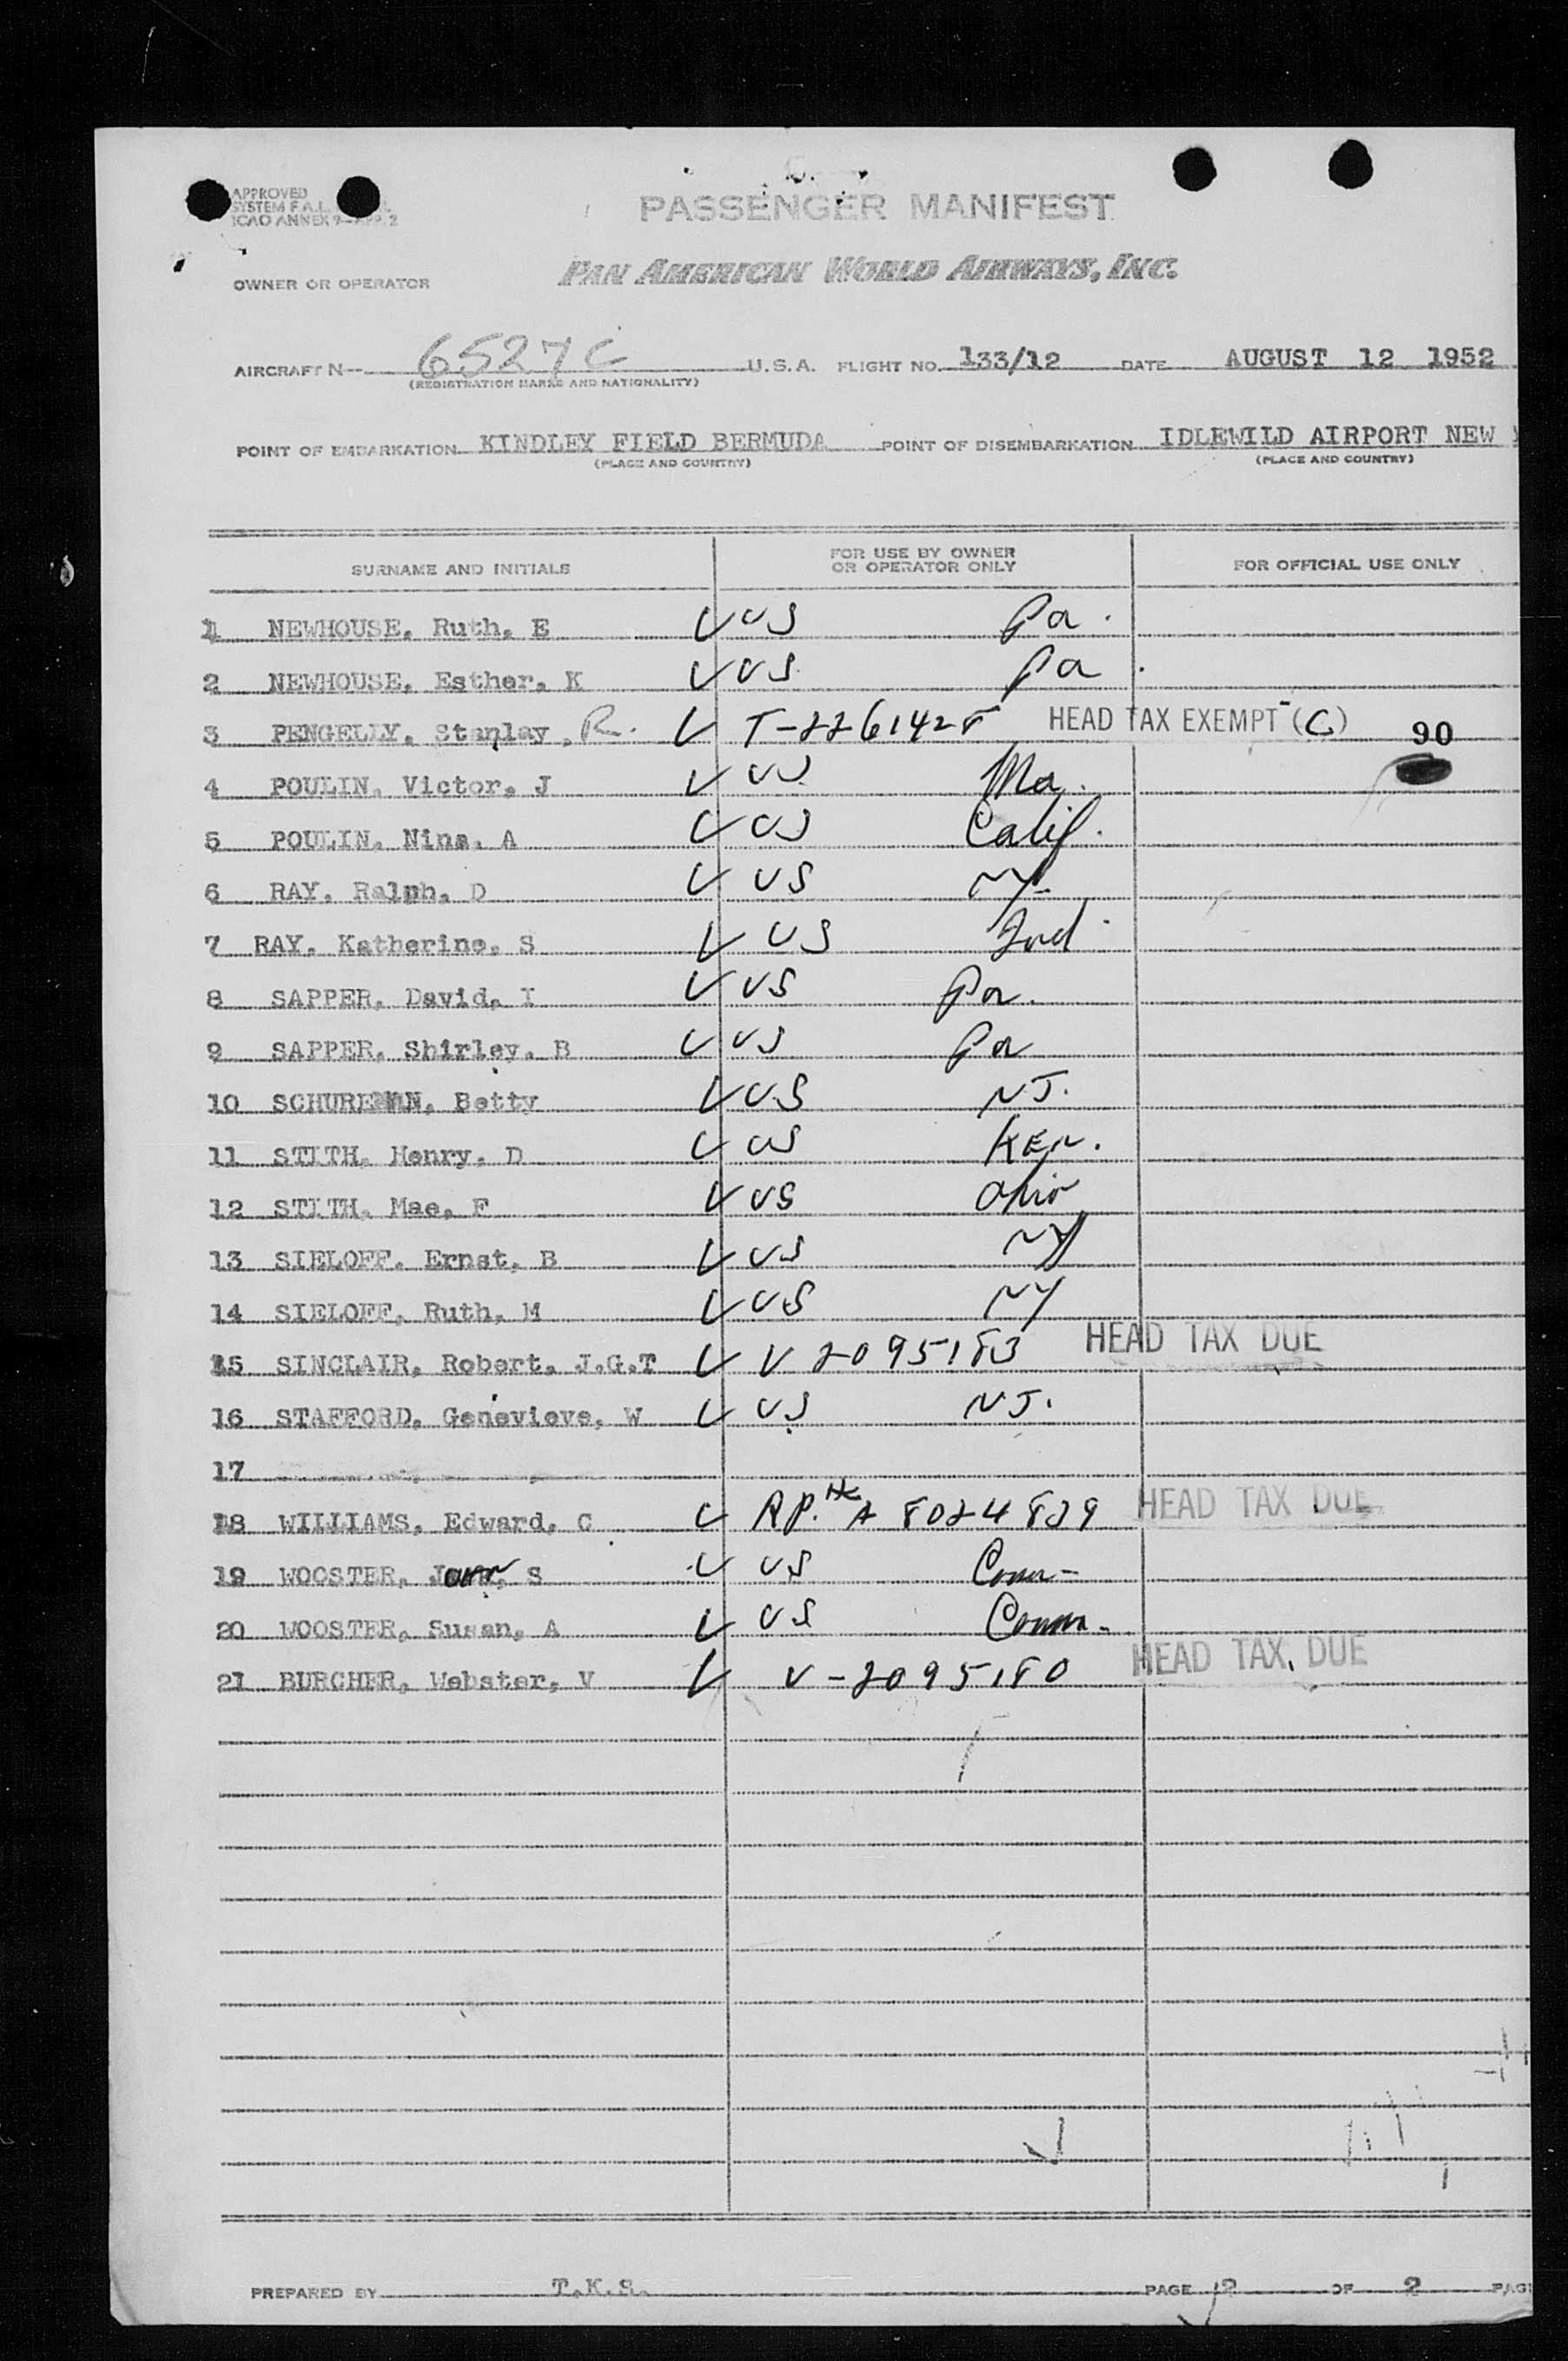 APPROVED
SYSTEM F.A.L.
ICAO ANNEX 9 APP. 2
PASSENGER MANIFEST
OWNER OR OPERATOR PAN AMERICAN WORLD AIRWAYS, INC.
AIRCRAFT N— 6527C U.S.A. FLIGHT NO. 133/12 DATE AUGUST 12 1952
(REGISTRATION MARKS AND NATIONALITY)
POINT OF EMBARKATION KINDLEY FIELD BERMUDA POINT OF DISEMBARKATION IDLEWILD AIRPORT NEW
(PLACE AND COUNTRY) (PLACE AND COUNTRY)
SURNAME AND INITIALS FOR USE BY OWNER OR OPERATOR ONLY FOR OFFICIAL USE ONLY
1 NEWHOUSE, Ruth, E US Pa.
2 NEWHOUSE, Esther, K US Pa.
3 PENGELLY, Stanley, R. T-2261428 HEAD TAX EXEMPT (C) 90
4 POULIN, Victor, J US Ma.
5 POULIN, Nina, A US Calif.
6 RAY, Ralph, D US NY.
7 RAY, Katherine, S US Ind.
8 SAPPER, David, I US Pa.
9 SAPPER, Shirley, B US Pa
10 SCHUREMAN, Betty US NJ.
11 STITH, Henry, D US KEN.
12 STITH, Mae, F US Ohio
13 SIELOFF, Ernst, B US NY
14 SIELOFF, Ruth, M US NY
15 SINCLAIR, Robert, J.G.T V 2095183 HEAD TAX DUE
16 STAFFORD, Genevieve, W US NJ.
17
18 WILLIAMS, Edward, C RP. A 8024829 HEAD TAX DUE
19 WOOSTER, S US Conn-
20 WOOSTER, Susan, A US Conn-
21 BURCHER, Webster, V V-2095180 HEAD TAX DUE
PREPARED BY T.K.S. PAGE 2 OF 2